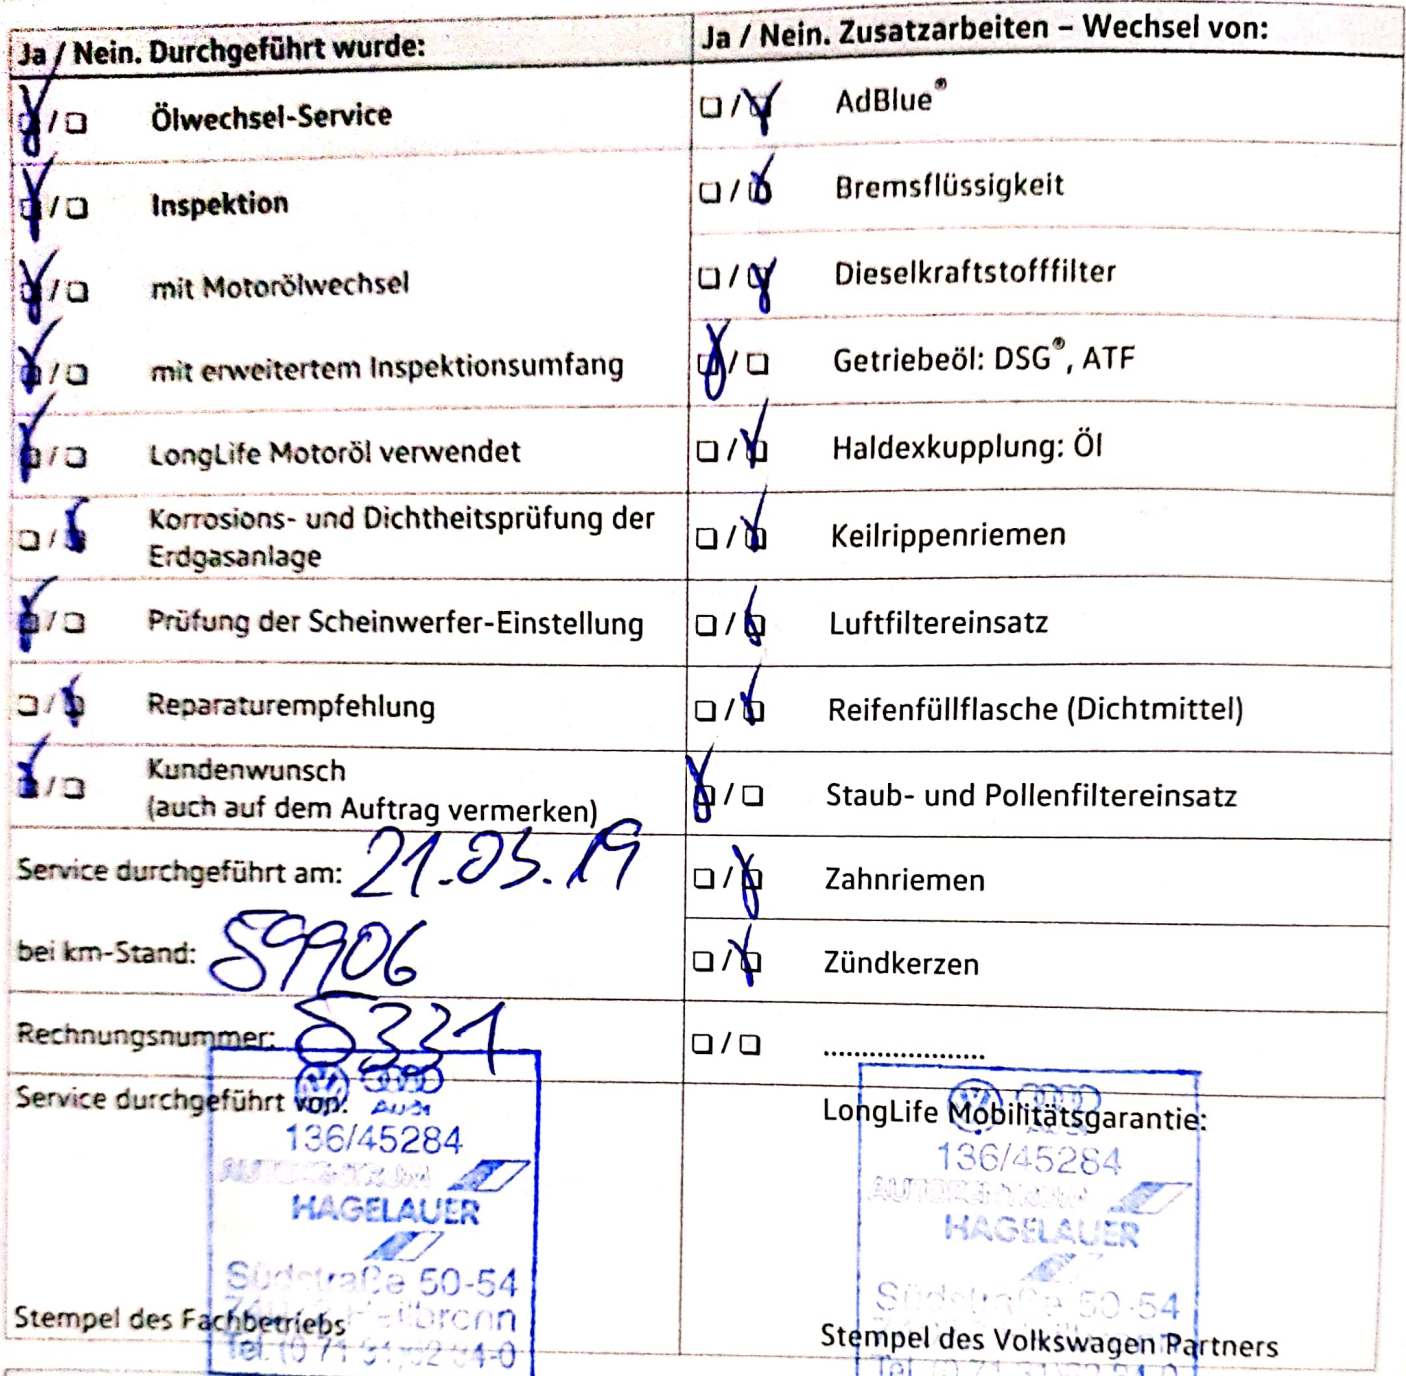 Ja / Nein. Durchgeführt wurde:
Ölwechsel-Service
Inspektion
mit Motorölwechsel
mit erweitertem Inspektionsumfang
LongLife Motoröl verwendet
Korrosions- und Dichtheitsprüfung der
Erdgasanlage
Prüfung der Scheinwerfer-Einstellung
Reparaturempfehlung
Kundenwunsch
(auch auf dem Auftrag vermerken)
Service durchgeführt am: 21.03.19
bei km-Stand: 59906
Rechnungsnummer: 5331
Service durchgeführt von:
Audi
136/45284
AUTOZENTRUM
HAGELAUER
Südstraße 50-54
Heilbronn
Stempel des Fachbetriebs
Tel. (0 71 31)
Ja / Nein. Zusatzarbeiten – Wechsel von:
AdBlue®
Bremsflüssigkeit
Dieselkraftstofffilter
Getriebeöl: DSG®, ATF
Haldexkupplung: Öl
Keilrippenriemen
Luftfiltereinsatz
Reifenfüllflasche (Dichtmittel)
Staub- und Pollenfiltereinsatz
Zahnriemen
Zündkerzen
.....................
LongLife Mobilitätsgarantie:
136/45284
AUTOZENTRUM
HAGELAUER
Südstraße 50-54
Stempel des Volkswagen Partners